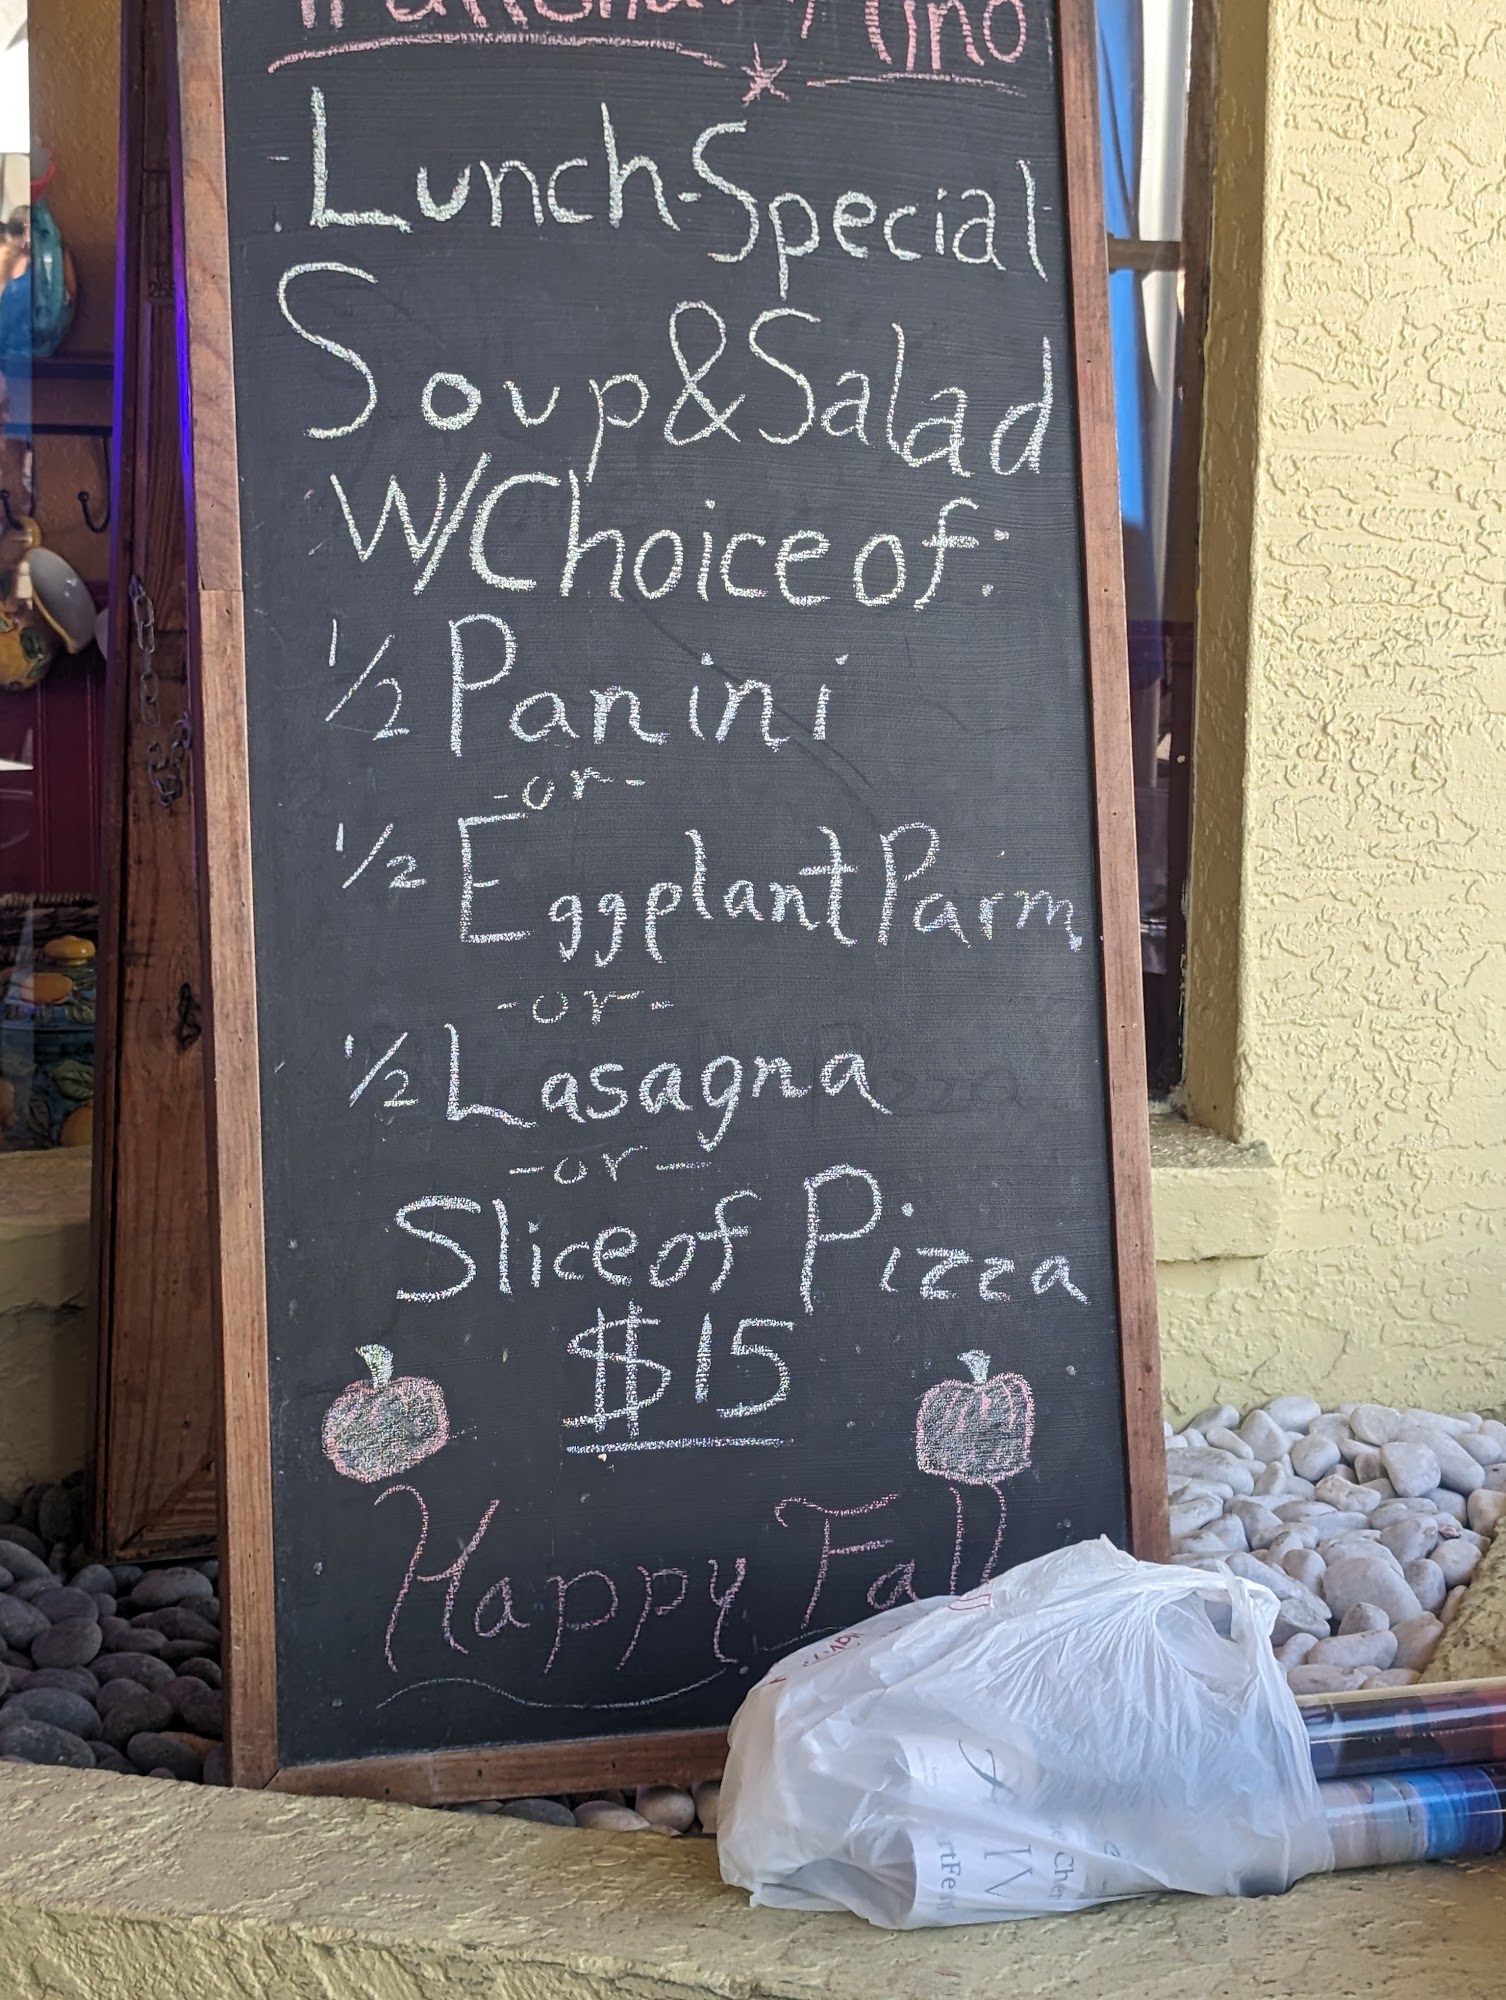 Lunch-Special
Soup & Salad
W/Choice of:
1/2 Panini
-or-
1/2 Eggplant Parm
-or-
1/2 Lasagna
-or-
Slice of Pizza
$15
Happy Fall